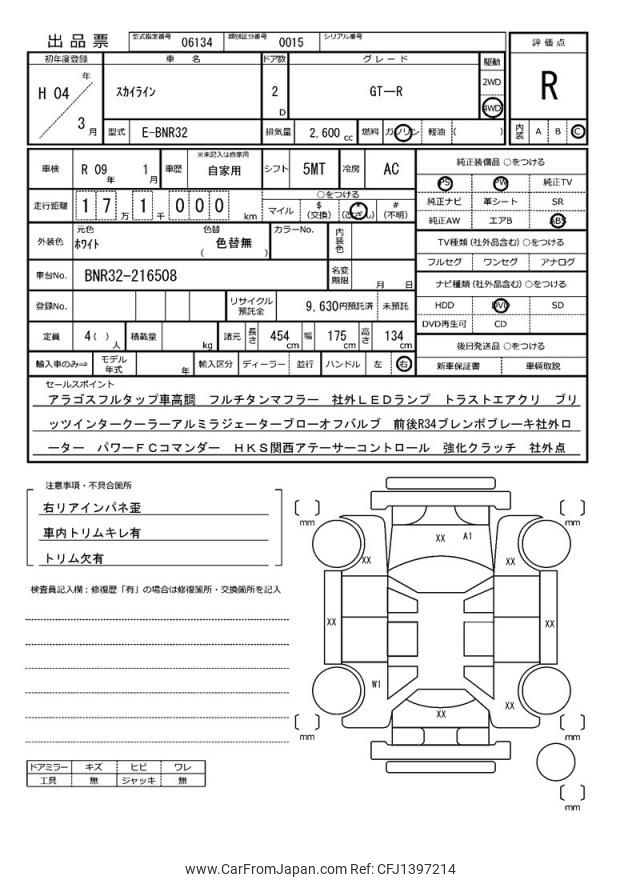 出品票 型式指定番号 06134 類別区分番号 0015 シリアル番号
評価点
R
内装 A B C
初年度登録 車名 ドア数 グレード 駆動
H 04 年 3 月 スカイライン 2 D GT−R 2WD 4WD
型式 E-BNR32 排気量 2,600 cc 燃料 ガソリン 軽油 ( )
車検 R 09 年 1 月 車歴 ※未記入は自家用 自家用 シフト 5MT 冷房 AC
走行距離 1 7 万 1 千 0 0 0 km ○をつける
マイル $ (交換) * (改ざん) # (不明)
外装色 元色 ホワイト 色替 色替無 ( ) カラーNo. 内装色
車台No. BNR32-216508 名変期限 月 日
登録No. リサイクル預託金 9,630円預託済 未預託
定員 4( ) 人 積載量 kg 諸元 長さ 454 cm 幅 175 cm 高さ 134 cm
輸入車のみ⇒ モデル年式 年 輸入区分 ディーラー 並行 ハンドル 左 右
純正装備品 ○をつける
PS PW 純正TV
純正ナビ 革シート SR
純正AW エアB ABS
TV種類 (社外品含む) ○をつける
フルセグ ワンセグ アナログ
ナビ種類 (社外品含む) ○をつける
HDD DVD SD
DVD再生可 CD
後日発送品 ○をつける
新車保証書 車輌取説
セールスポイント
アラゴスフルタップ車高調 フルチタンマフラー 社外ＬＥＤランプ トラストエアクリ ブリ
ッツインタークーラーアルミラジェーターブローオフバルブ 前後R34ブレンボブレーキ社外ロ
ーター パワーＦＣコマンダー ＨＫＳ関西アテーサーコントロール 強化クラッチ 社外点
注意事項・不具合箇所
右リアインパネ歪
車内トリムキレ有
トリム欠有
検査員記入欄：修復歴「有」の場合は修復箇所・交換箇所を記入
ドアミラー キズ ヒビ ワレ
工具 無 ジャッキ 無
mm mm
XX A1
XX XX
XX XX
W1 XX
XX
mm mm
mm
www.CarFromJapan.com Ref: CFJ1397214